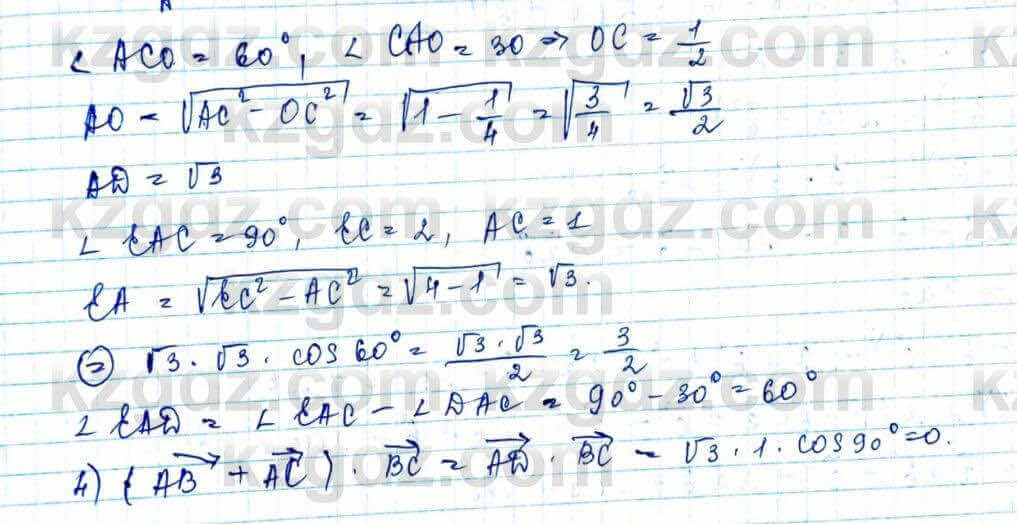 ∠ ACO = 60°, ∠ CAO = 30 ⇒ OC = 1/2
AO = √(AC² - OC²) = √(1 - 1/4) = √(3/4) = √3/2
AD = √3
∠ EAC = 90°, EC = 2, AC = 1
EA = √(EC² - AC²) = √(4-1) = √3.
⊜ √3 · √3 · cos 60° = (√3 · √3)/2 = 3/2
∠ EAD = ∠ EAC - ∠ DAC = 90° - 30° = 60°
4) (AB⃗ + AC⃗) · BC⃗ = AD⃗ · BC⃗ = √3 · 1 · cos 90° = 0.
kzgdz.com
kzgdz.com
kzgdz.com
kzgdz.com
kzgdz.com
kzgdz.com